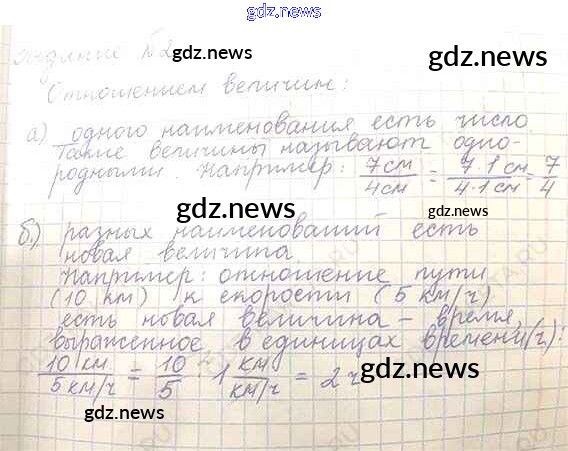 gdz.news
Задание №2 gdz.news gdz.news
Отношением величин:
а) одного наименования есть число.
Такие величины называют одно-
родными. Например: 7 см / 4 см = 7 · 1 см / 4 · 1 см = 7 / 4
gdz.news gdz.news
б) разных наименований есть
новая величина.
Например: отношение пути
(10 км) к скорости (5 км/ч)
gdz.news
есть новая величина – время,
выраженное в единицах времени (ч):
10 км / 5 км/ч = 10 / 5 · 1 км / км/ч = 2 ч
gdz.news
gdz.news
gdz.news